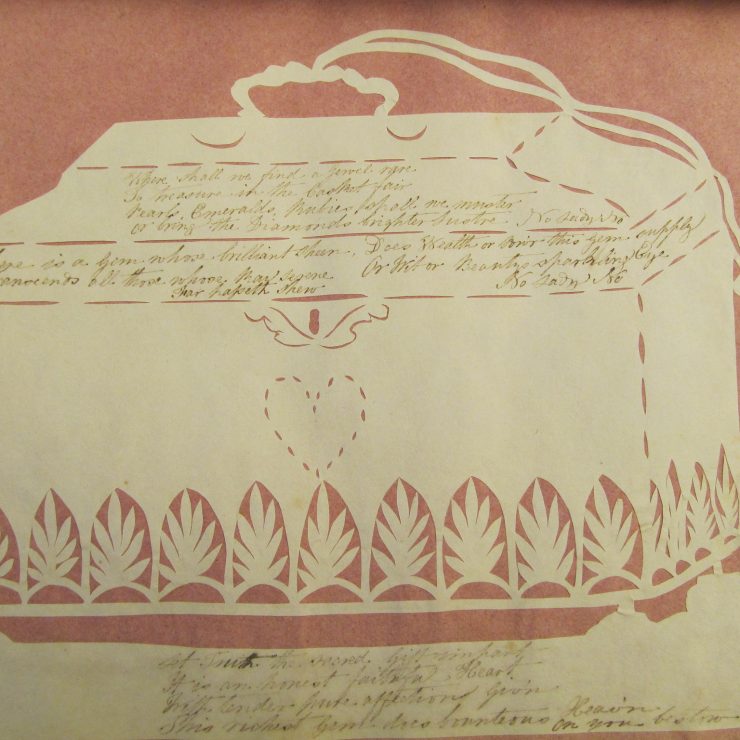 Where shall we find a jewel rare
To treasure in the Casket fair
Pearls, Emeralds, Rubies shall we muster
or bring the Diamonds brighter lustre No Lady No
is a Gem whose brilliant
all those whose May
Far hapeth shew
Does Wealth or this Gem supply
Or Wit or Beauty's sparkling Eye
No Lady No
Let Truth the sacred Gift impart
It is an honest faithful Heart
With tender pure affections Giv'n
This richest Gem does bounteous Heav'n
on you bestow